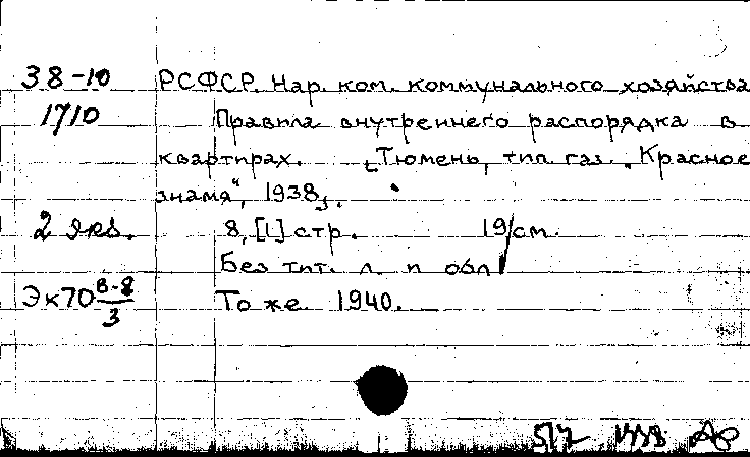 38-10 РСФСР. Нар. ком. коммунального хозяйства
1710 Правила внутреннего распорядка в
квартирах. [Тюмень, тип. газ. „Красное
знамя", 1938].
2 экз. 8, [1] стр. 19 см.
Без тит. л. и обл.
Эк70 В-8/3 То же. 1940.
5/7